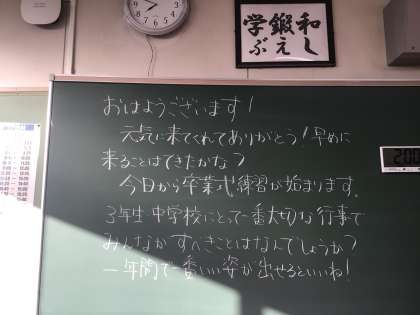 和し
鍛え
学ぶ
おはようございます！
元気に来てくれてありがとう！早めに
来ることはできたかな？
今日から卒業式練習が始まります。
3年生・中学校にとって一番大切な行事で
みんながすべきことはなんでしょうか？
一年間で一番いい姿が出せるといいね！
2:00